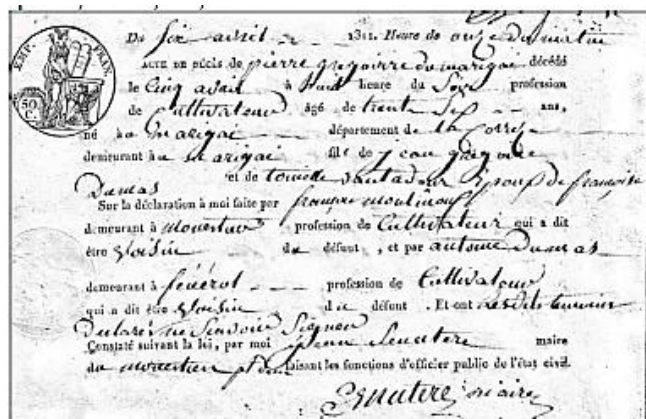 EMP. FRAN.
50 C.
Du six avril 1811. Heure de onze du matin
ACTE DE DÉCÈS de pierre gregoirre du marigai décédé
le Cinq avril à huit heure du Soir profession
de Cultivateur âgé de trente ans,
né au marigai département de la Correze
demeurant au marigai fils de jean gregoire
et de Vantadour Epoux de françoise
Dumas
Sur la déclaration à moi faite par françois
demeurant à profession de Cultivateur qui a dit
être Voisin du défunt, et par antoine Dumas
demeurant à profession de Cultivateur
qui a dit être Voisin du défunt. Et ont
Declaré ne Savoir Signer
Constaté suivant la loi, par moi jean maire
du faisant les fonctions d'officier public de l'état civil.
maire